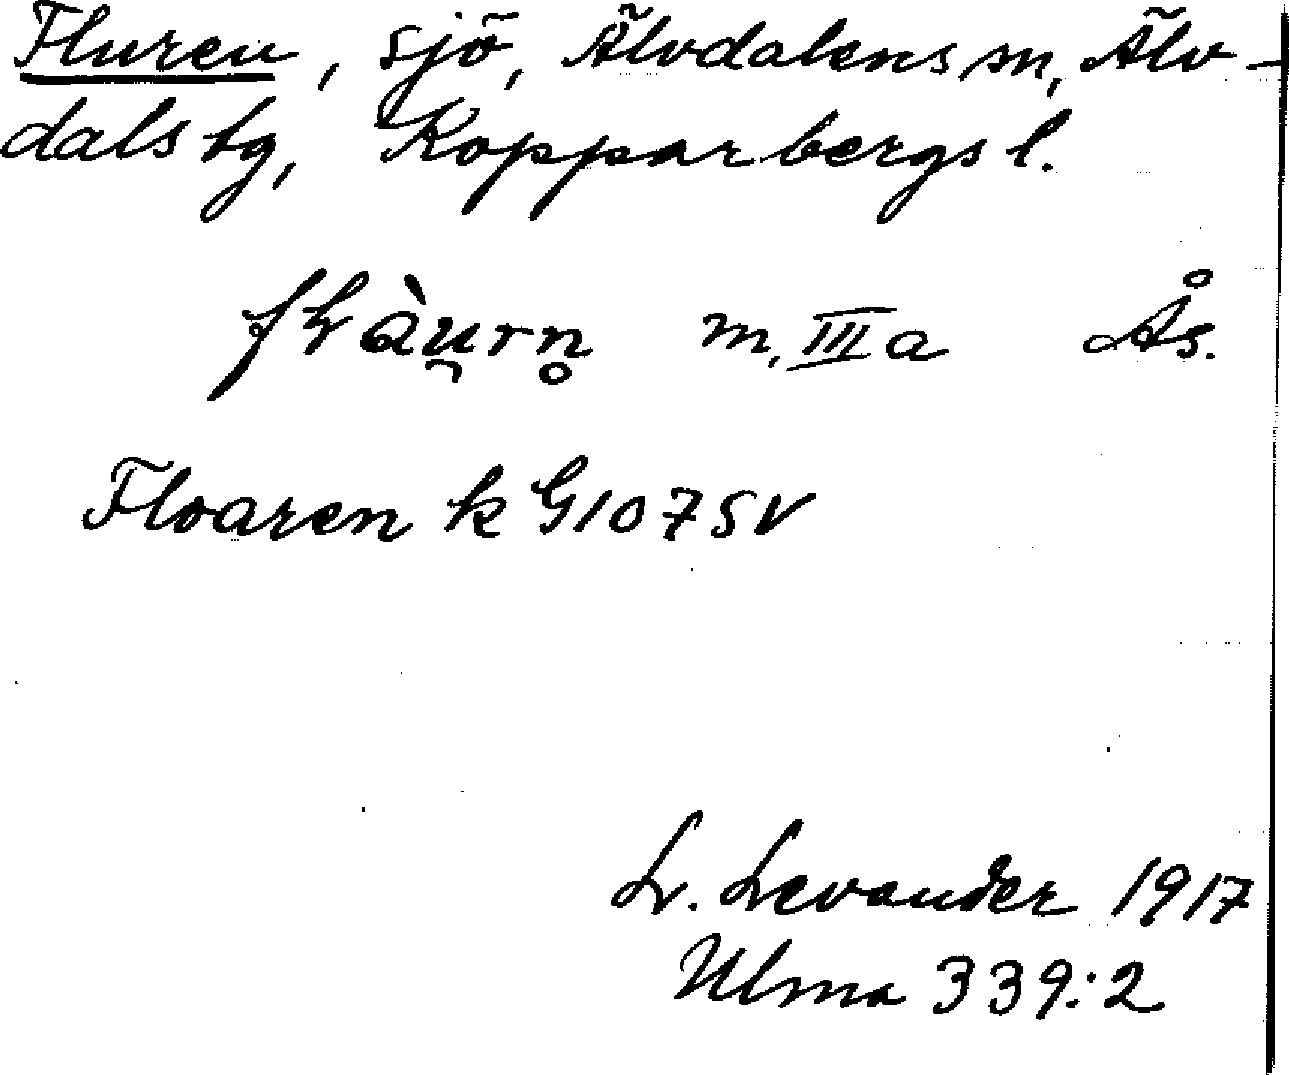 Fluren, sjö, Älvdalens sn, Älv-
dals tg, Kopparbergs l.
fɫàu̯rn̥ m. IIIa Ås.
Floaren k G 107 SV
L. Levander 1917
Ulma 339:2